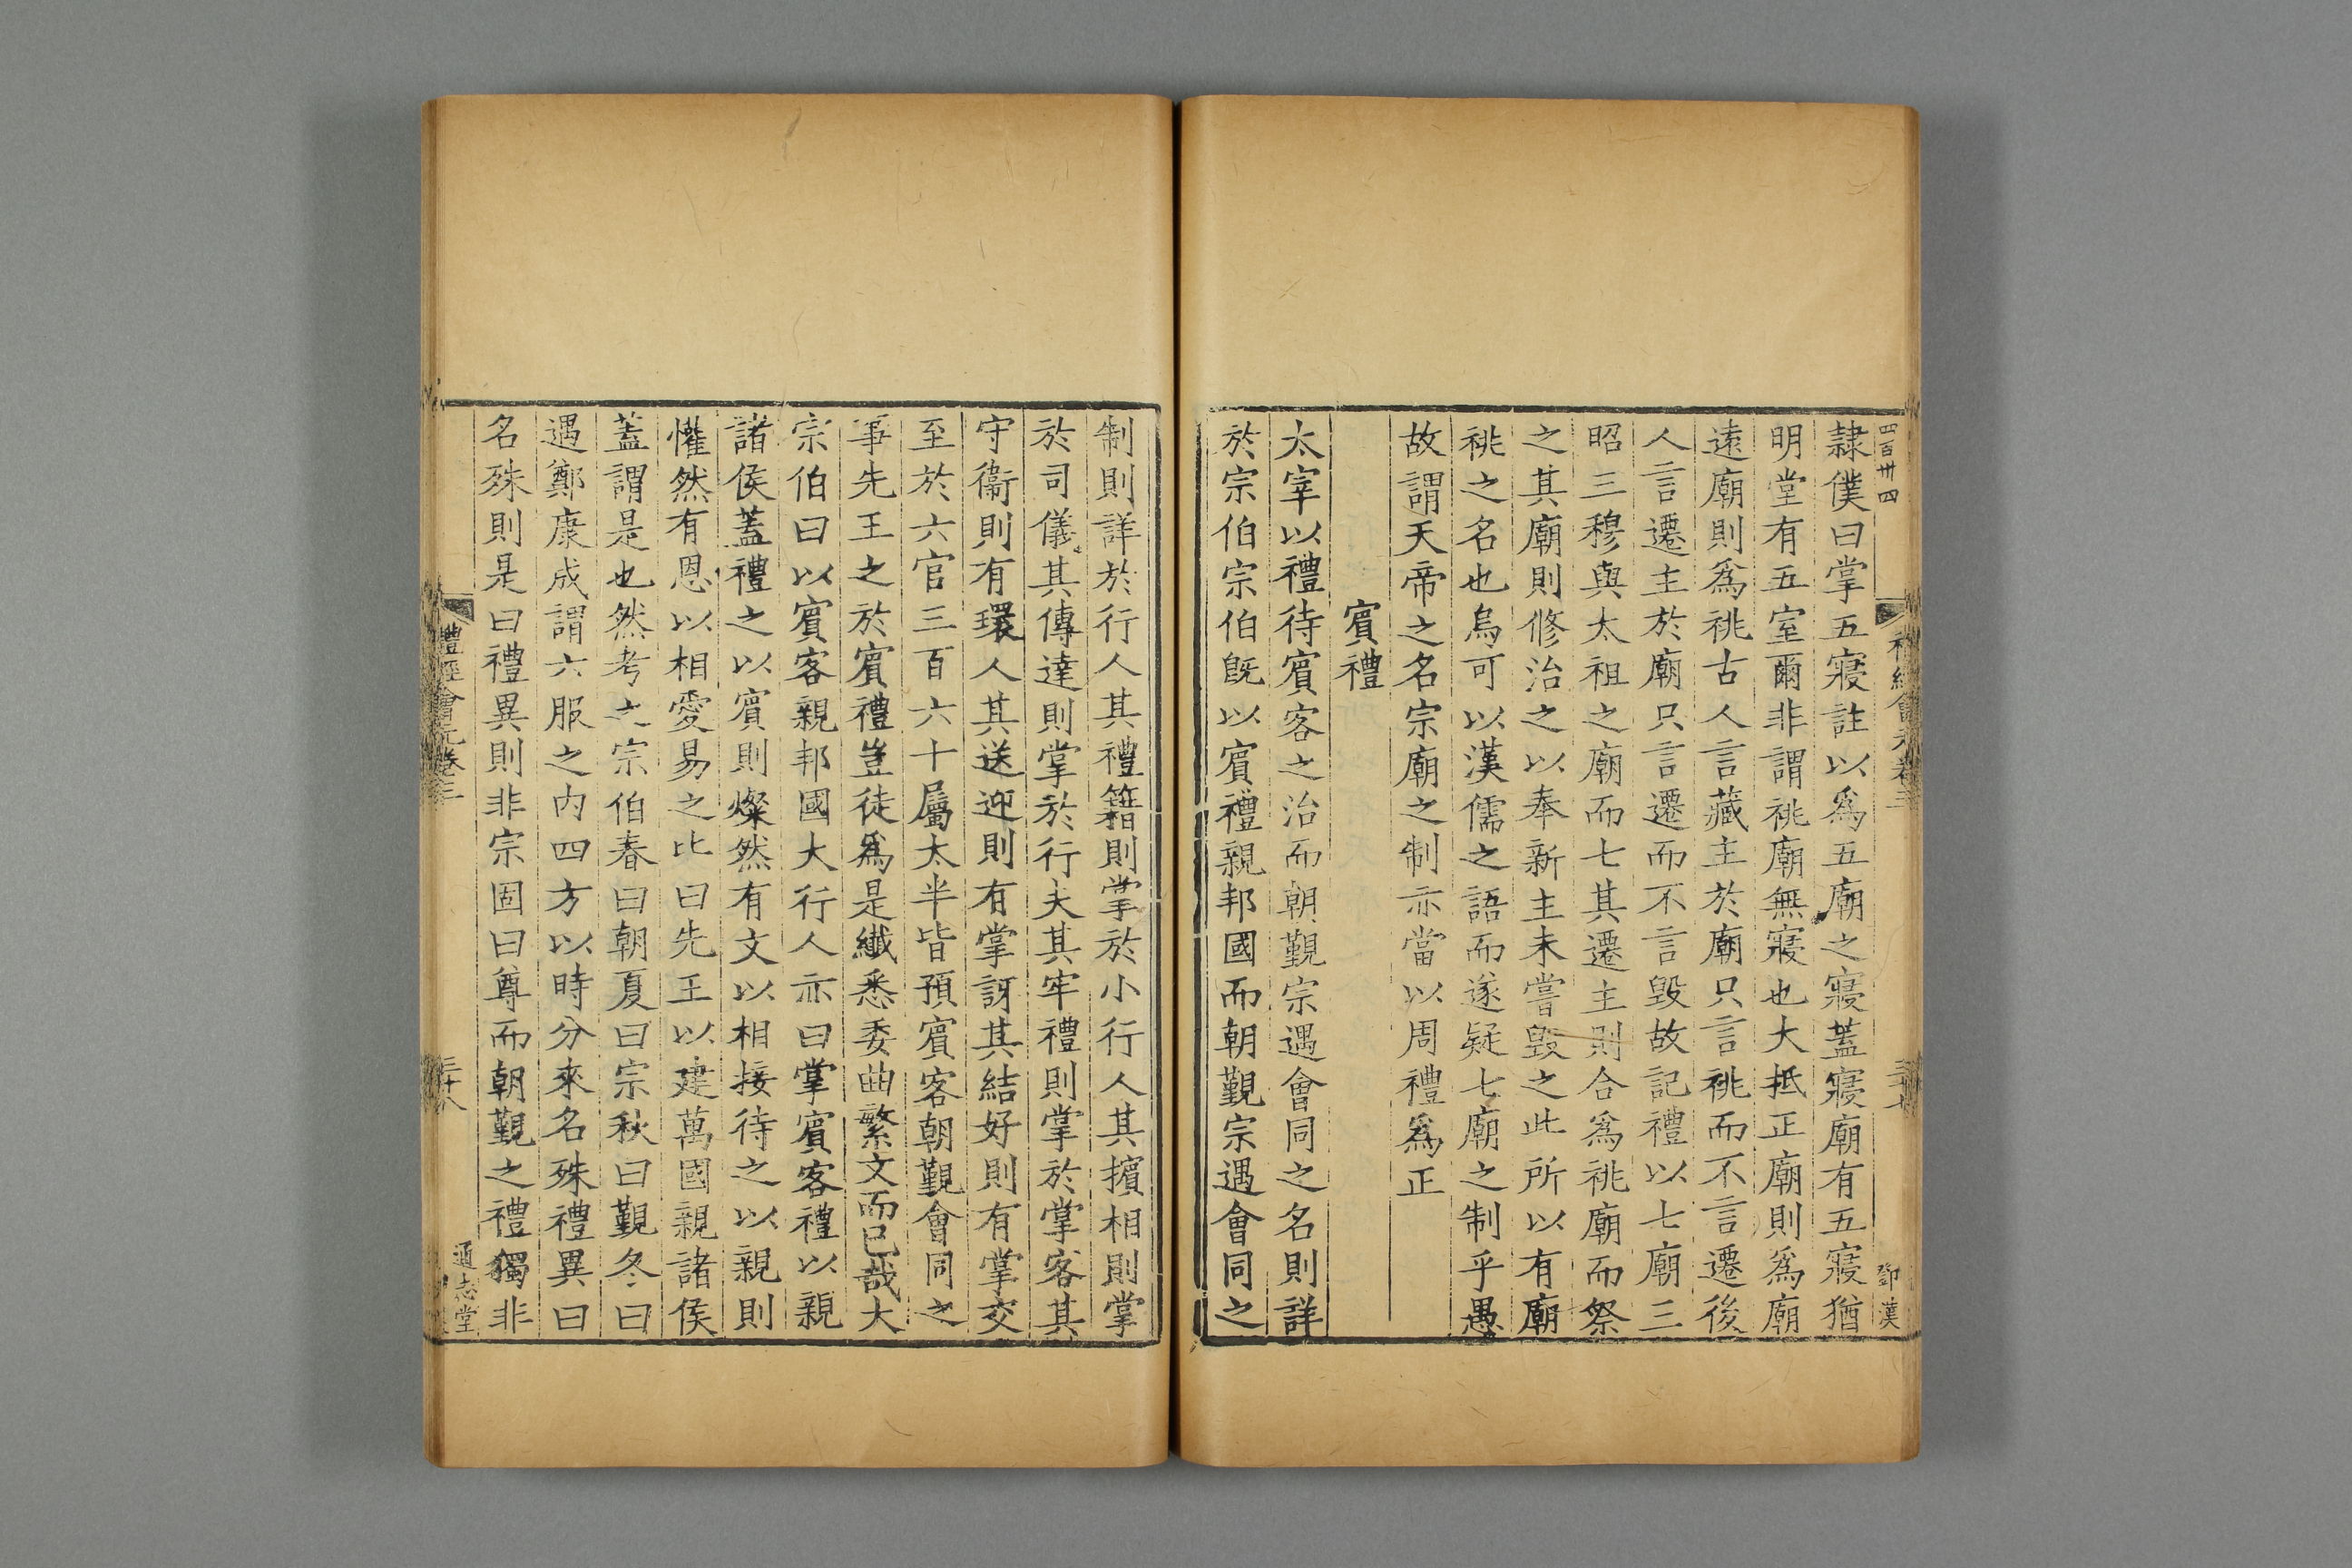 四百卅四
禮經會元卷三
三十七
鄧漢
隸僕曰掌五寢註以爲五廟之寢蓋寢廟有五寢猶
明堂有五室爾非謂祧廟無寢也大抵正廟則爲廟
遠廟則爲祧古人言藏主於廟只言祧而不言遷後
人言遷主於廟只言遷而不言毀故記禮以七廟三
昭三穆與太祖之廟而七其遷主則合爲祧廟而祭
之其廟則修治之以奉新主未嘗毀之此所以有廟
祧之名也烏可以漢儒之語而遂疑七廟之制乎愚
故謂天帝之名宗廟之制亦當以周禮爲正
賓禮
太宰以禮待賓客之治而朝覲宗遇會同之名則詳
於宗伯宗伯旣以賓禮親邦國而朝覲宗遇會同之
制則詳於行人其禮籍則掌於小行人其擯相則掌
於司儀其傳達則掌於行夫其牢禮則掌於掌客其
守衞則有環人其送迎則有掌訝其結好則有掌交
至於六官三百六十屬太半皆預賓客朝覲會同之
事先王之於賓禮豈徒爲是纖悉委曲繁文而已哉大
宗伯曰以賓客親邦國大行人亦曰掌賓客禮以親
諸侯蓋禮之以賓則燦然有文以相接待之以親則
懽然有恩以相愛易之比曰先王以建萬國親諸侯
蓋謂是也然考之宗伯春曰朝夏曰宗秋曰覲冬曰
遇鄭康成謂六服之內四方以時分來名殊禮異曰
名殊則是曰禮異則非宗固曰尊而朝覲之禮獨非
禮經會元卷三
三十八
通志堂